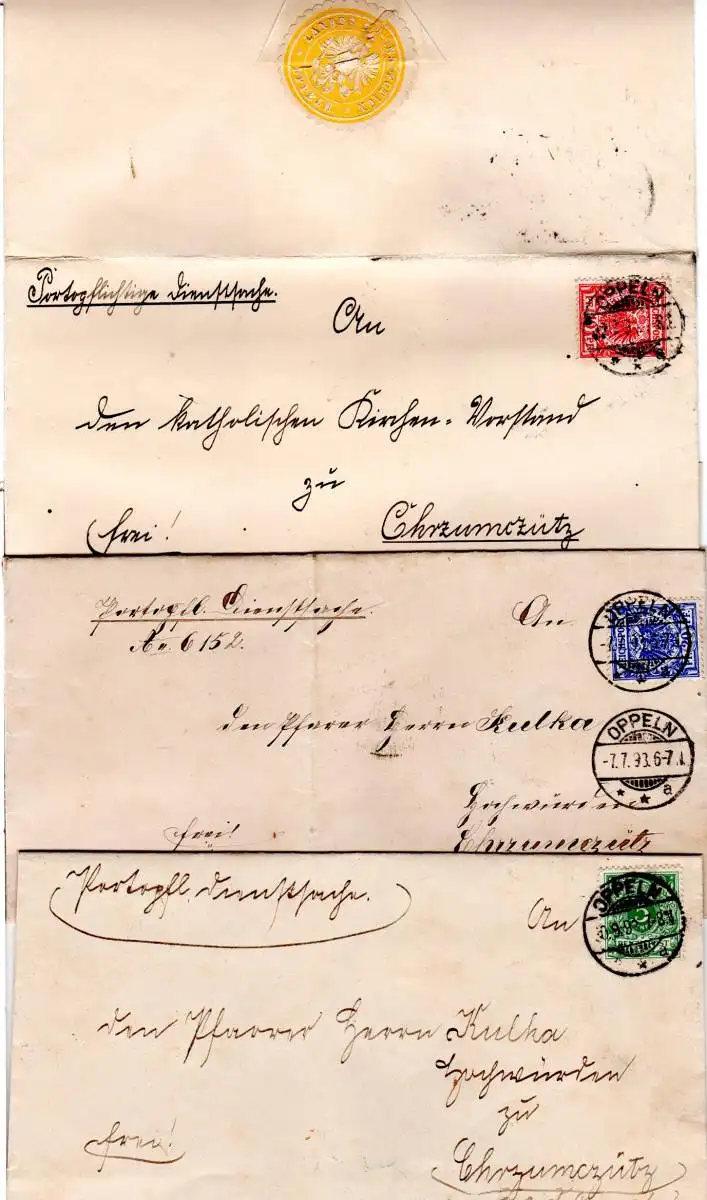 Portopflichtige Dienstsache.
OPPELN
An
den katholischen Kirchen-Vorstand
zu
frei!
Chrzumczütz
Portopfl. Dienstsache.
6152.
An
OPPELN
den Pfarrer Herrn Kulka
OPPELN
-7.7.93.6-7
a
Hochwürden
frei!
Chrzumczütz
Portopfl. Dienstsache.
An
OPPELN
den Pfarrer Herrn Kulka
Hochwürden
zu
frei!
Chrzumczütz